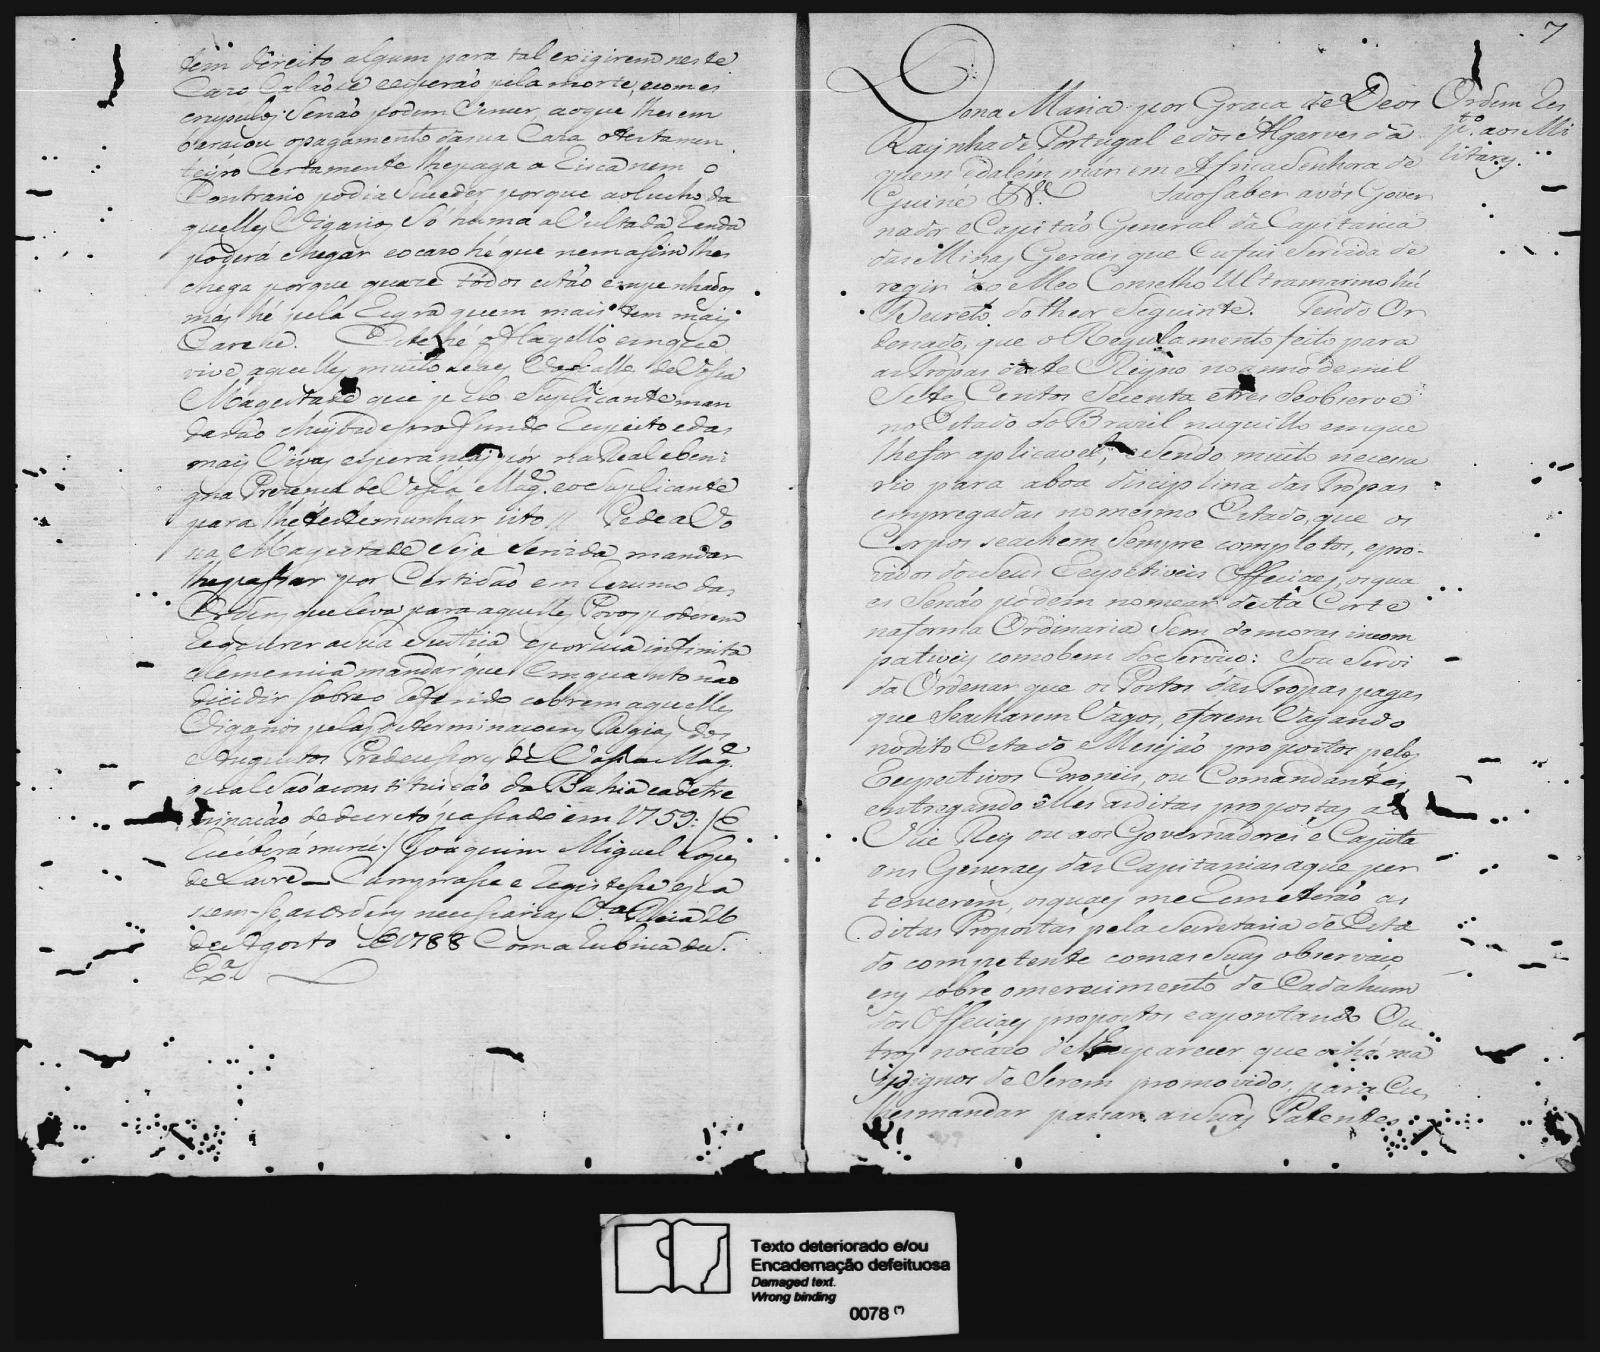 tem direito algum para tal exigirem neste
Cazo esperão pela morte, e com es
crupulos: Senão podem Vencer, aoque lhes em
o pagamento dasua Caza o testamen
teiro Certamente lhe paga a nem o
Contrario podia Suceder porque
quelles Ciganos Só huma
poderá chegar eo cazo hé que nem asim lhes
chega porque quaze todos estão empenhados
mas hé pela Regra quem mais tem mais
Carese. Este hé o flagello emque
vive aquelles muito Leaes Vassallos de Vossa
Magestade que pelo Suplicante man
darão profundo Respeito e das
mais Vivas esperanças por na Real e beni:
gna Prezença de Vossa Mag.e eo Suplicante
para lhe testemunhar isto // Pede a Vo
ssa Magestade Seja Servida mandar
lhe passar por Certidão em rezumo das
Ordens que leva para aquelles Povos poderem
Requerer asua Justica epor sua infinita
clemencia mandar que Emquanto não
decidir sobre o referido cobrem aquelles
Ciganos pelas determinacoens Regias dos
Augustos Predecessores de Vossa Mag.e
qual são a constituicão da Bahia eadetre
minacão de decreto passado em 1759: /E
Receberá mercê:/ Joaquim Miguel Lopes
de Lavre _ Cumprase e registese e pa
ssem-se as Ordens necessarias V.a Rica 26
de Agosto de 1788 Com a Rubrica de S.
Ex.a
7
Dona Maria por Graca de Deos
Raynha de Portugal e dos Algarves da
quem e dalém már em Africa Senhora de
Guiné &.a Faco saber a vós Gover
nador e Capitão General da Capitania
das Minas Geraes que Eu fui Servida de
regir ao Meo Conselho Ultramarino hú
Decreto do theor Seguinte. Tendo Or
denado, que o Regulamento feito para
as Tropas deste Reyno no anno de mil
Sete Centos Secenta e tres Se observe
no Estado do Brazil naquillo emque
lhe for aplicavel, e Sendo muito necessa
rio para aboa disciplina das Tropas
empregadas no mesmo Estado, que os
Corpos se achem Sempre completos, e pro-
vidos dos Seus Respétiveis Officiaes, os qua
es Senão podem nomear desta Corte
na forma Ordinaria Sem demoras incom
pativeis com o bem do Servico: Sou Servi
da Ordenar que os Postos das Tropas pagas
que Se acharem Vagos, e forem Vagando
no dito Estado Me sejão propostos pelos
Respectivos Coroneis, ou Comandantes
entregando elles as ditas propostas ao
Vice Rey ou aos Governadores e Capita
ens Generaes das Capitanias aque per
tencerem, os quaes me Remeterão as
ditas Propostas pela Secretaria de Esta
do competente com as Suas observaço
ens sobre o merecimento de Cada hum
dos Officiaes propostos e apontando Ou
tros no cazo de lhes parecer que os há ma
is dignos de Serem promovidos, para Eu
lhes mandar passar as Suas Patentes
Ordem Res
p.to aos Mi
litares.
Texto deteriorado e/ou
Encadernação defeituosa
Damaged text.
Wrong binding
0078 (*)